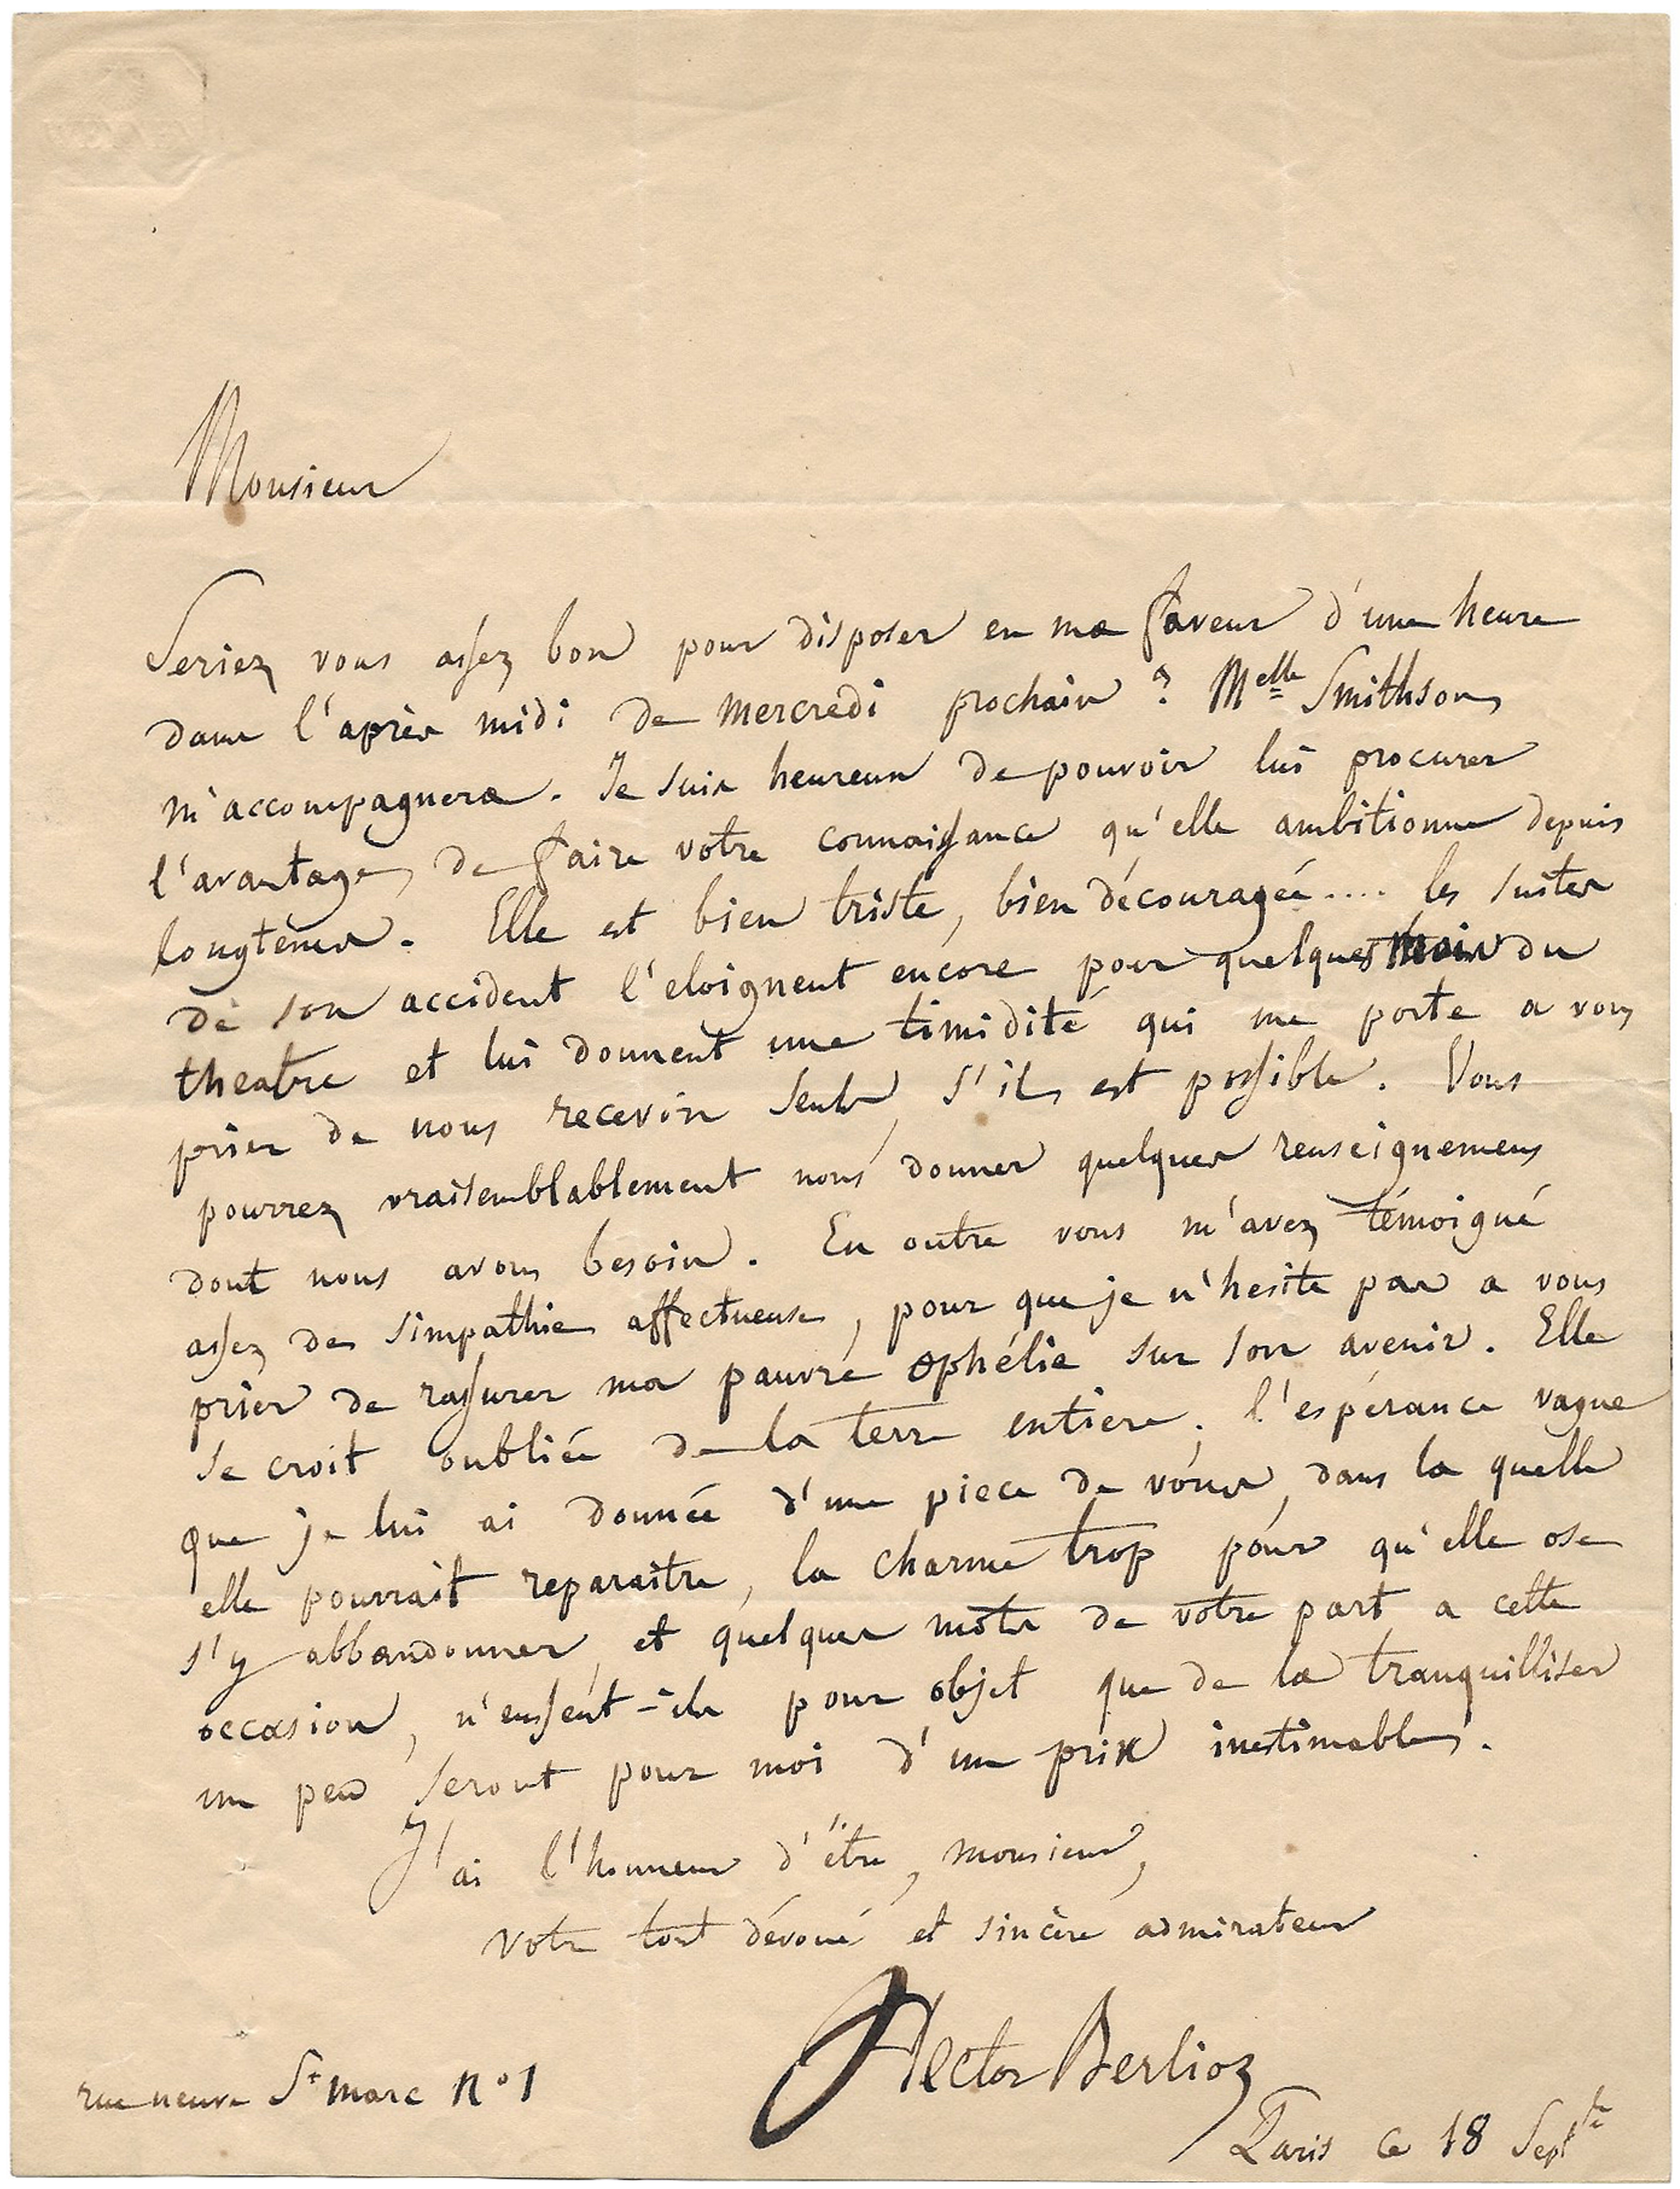 Monsieur
Seriez vous assez bon pour disposer en ma faveur d'une heure
dans l'après midi de Mercredi prochain ? Melle Smithson
m'accompagnera. Je suis heureux de pouvoir lui procurer
l'avantage de faire votre connaissance qu'elle ambitionne depuis
longtems. Elle est bien triste, bien découragée.... les suites
de son accident l'eloignent encore pour quelques mois du
theatre et lui donnent une timidité qui me porte a vous
prier de nous recevoir seuls, s'il est possible. Vous
pourrez vraisemblablement nous donner quelques renseignemens
dont nous avons besoin. En outre vous m'avez témoigné
assez de simpathie affectueuse, pour que je n'hesite pas a vous
prier de rassurer ma pauvre Ophélie sur son avenir. Elle
se croit oubliée de la terre entiere; l'espérance vague
que je lui ai donnée d'une piece de vous, dans la quelle
elle pourrait reparaitre, la charme trop pour qu'elle ose
s'y abbandonner, et quelques mots de votre part a cette
occasion, n'eussent-ils pour objet que de la tranquilliser
un peu seront pour moi d'un prix inestimable.
J'ai l'honneur d'être, monsieur,
votre tout dévoué et sincère admirateur
Hector Berlioz
rue neuve St Marc No 1
Paris ce 18 Septbre